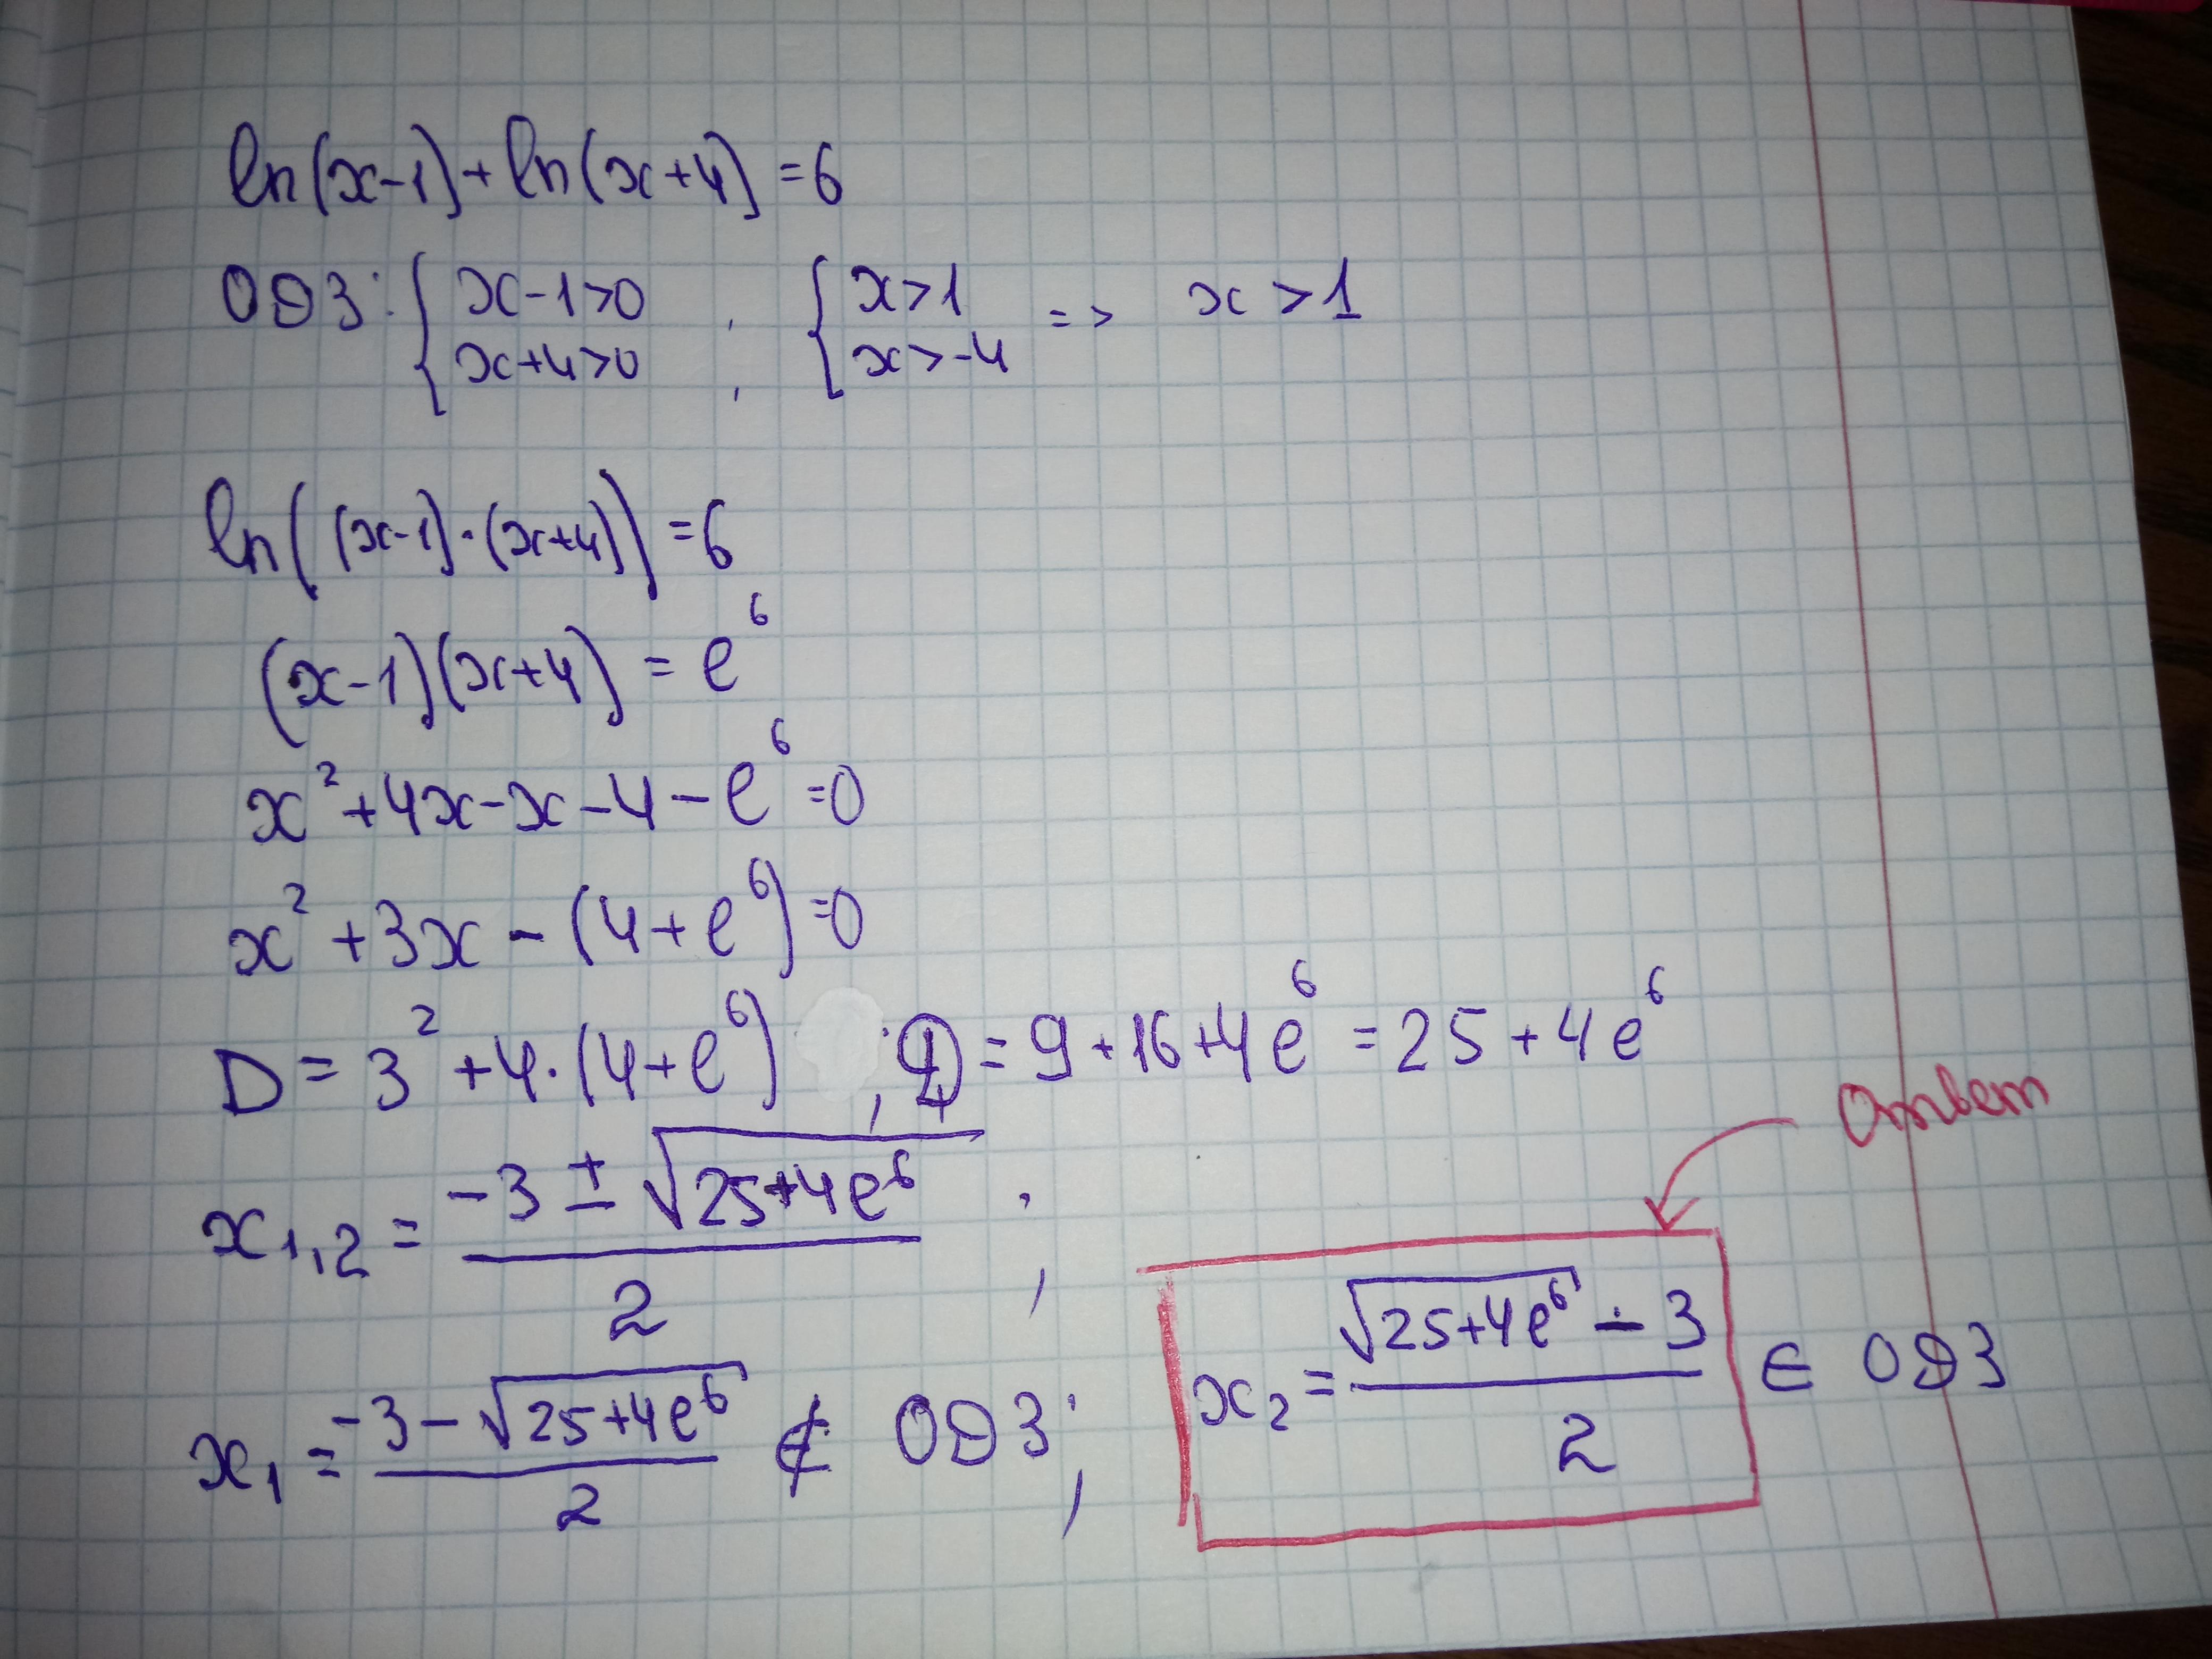 ln(x-1)+ln(x+4)=6
ОДЗ: { x-1>0 ; { x>1 => x>1
x+4>0 x>-4
ln((x-1)·(x+4))=6
(x-1)(x+4)=e⁶
x²+4x-x-4-e⁶=0
x²+3x-(4+e⁶)=0
D=3²+4·(4+e⁶) ; D=9+16+4e⁶=25+4e⁶
Ответ
x₁,₂=(-3±√(25+4e⁶))/2 ;
x₁=(-3-√(25+4e⁶))/2 ∉ ОДЗ; x₂=(√(25+4e⁶)-3)/2 ∈ ОДЗ